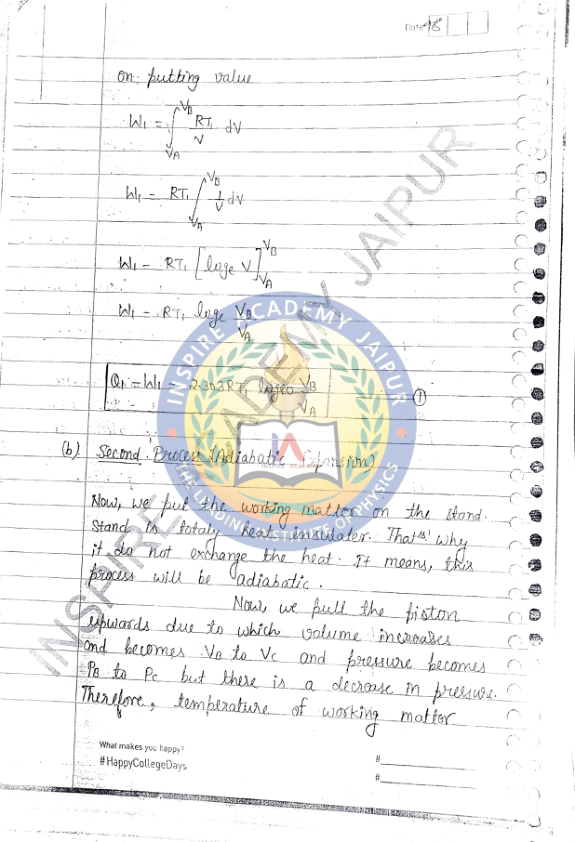 Date 98
on putting value
W₁ = ∫_{V_A}^{V_B} RT₁/V dV
W₁ = RT₁ ∫_{V_A}^{V_B} 1/V dV
W₁ = RT₁ [loge V]_{V_A}^{V_B}
W₁ = RT₁ loge V_B/V_A
Q₁ = W₁ = 2.303 RT₁ log10 V_B/V_A ①
(b) Second Process (Adiabatic Expansion)
Now, we put the working matter on the stand.
Stand is totaly heat insulater. That's why
it do not exchange the heat. It means, this
process will be adiabatic.
Now, we pull the piston
upwards due to which volume increases
and becomes V_B to V_C and pressure becomes
P_B to P_C but there is a decrease in pressure.
Therefore, temperature of working matter
What makes you happy?
#HappyCollegeDays
#
#
INSPIRE ACADEMY JAIPUR
INSPIRE ACADEMY JAIPUR
IA
INSPIRE ACADEMY
THE LEADING INSTITUTE OF PHYSICS